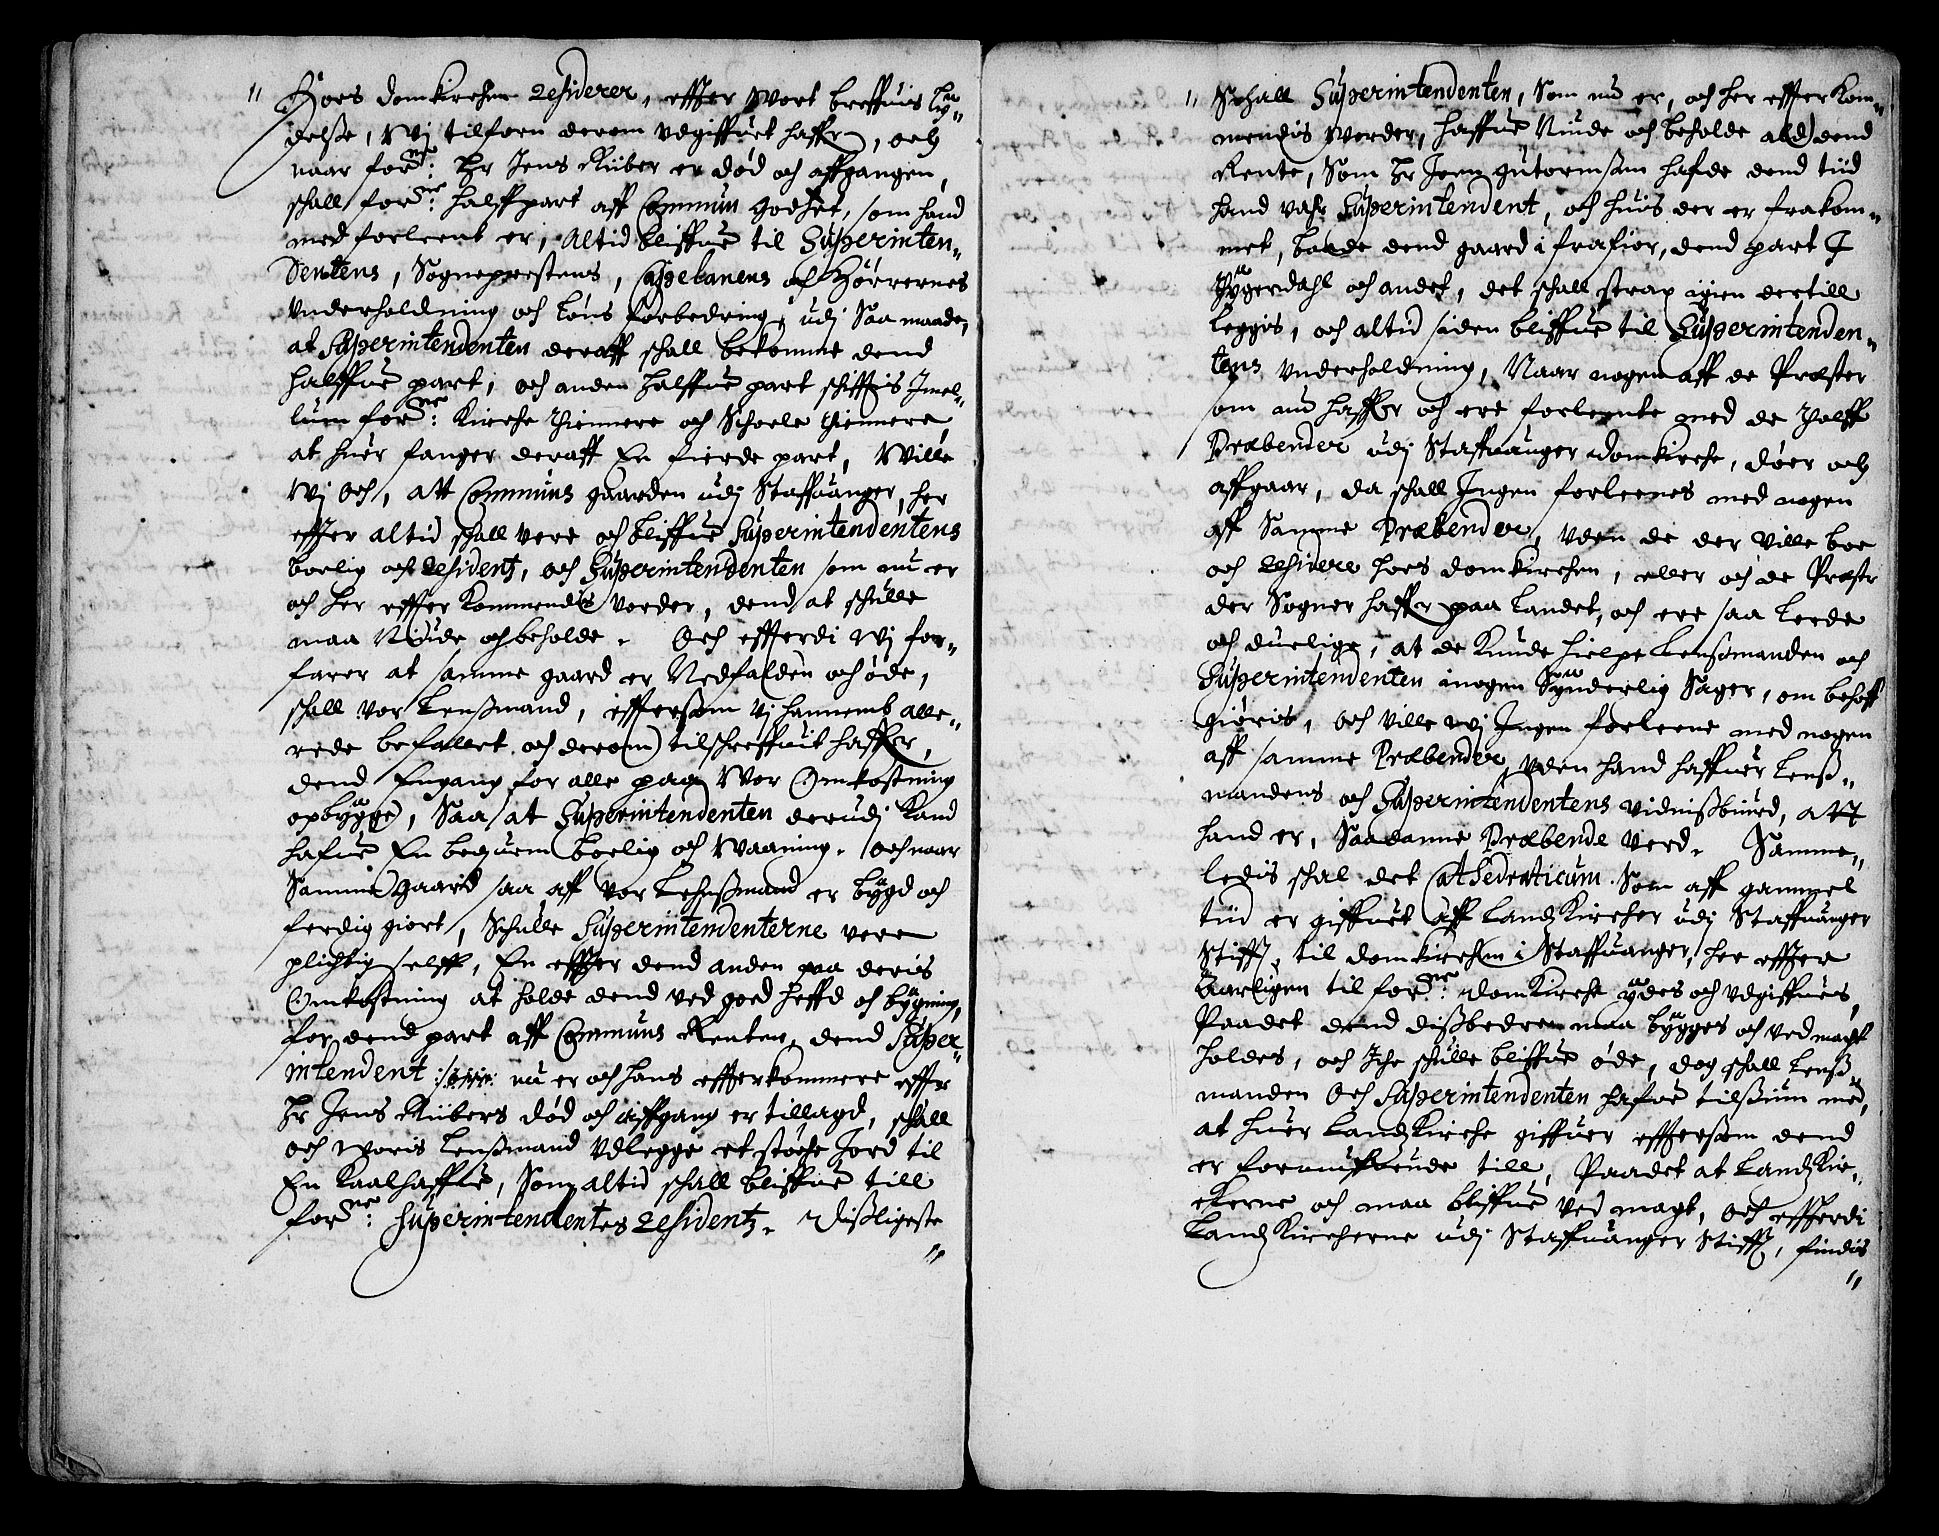 Hoes domkirchen Residerer, effter Wort breffuis liu„
delße, Wj tilforn derom vdgiffuet haffr, och
naar forne: Hr Jens Riber er død och affgangen,
schall forne: halffpart aff Commun godhet, som hand
med forleent er, altid bliffue til Superinten„
dentens, Sogneprestens, Capelanens och Hörrernes
vnderholdning och løns forbedring, udj Saa maade,
at Superintendenten deraff schall bekomme dend
halffue part, och anden halffue part schifftis Jmel„
lum forne: Kirche thiennere och Schoele thiennere,
at huer fanger deraff En fierde part, Wille
Wj och, att Communs gaarden udj Staffuanger, her
effter altid schall vere och bliffue Superintendentens
boelig och Residentz, och Superintendenten som nu er
och her effter kommendis vorder, dend at schulle
maa Niude och beholde. Och effterdi Wj for„
farer at samme gaard er Nedfalden och øde,
schall vor Lenßmand, effterßom Vj hannemb alle„
rede befallet och derom tilschreffuit haffr,
dend Engang for alle paa Vor Omkostning
opbÿgge, Saa at Superintendenten derudj kand
hafue En bequem boelig och Waaning. Och naar
Samme gaard saa aff vor Lehnßmand er bÿgd och
ferdig giort, Schulle Superintendenterne vere
plichtig selff, En effter dend anden paa deris
Omkostning at holde dend ved goed heffd och bÿgning,
for dend part aff Communs Renten, dend Super„
intendent som nu er och hans effterkommere effter
Hr Jens Ribers død och affgang er tillagd, schall
och Woris Lenßmand Vdlegge et støche Jord til
En Kaalhaffue, Som altid schall bliffue till
forne: Superintendentes Residentz. Dißligeste
Schall Superintendenten, Som nu er, och her effter kom„
mendis Vorder, haffue Niude och beholde ald dend
Rente, Som Hr Joen gutormßøn hafde dend tiid
hand vahr Superintendent, och huis der er frakom„
met, baade dend gaard i frafior, dend part J
Hÿgerdahl och andet, det schall strax igien dertill
leggis, och altid siden bliffue til Superintenden„
tens Vnderholdning, Naar nogen aff de Præster
som nu haffr och ere forleente med de Tolff
Præbender udj Staffuanger domkirche, döer och
affgaar, da schall Ingen forleenes med nogen
aff Samme Præbender, Vden de der Ville boe
och Residere hoes domkirchen, eller och de Præster
der Sogner haffr paa Landet, och ere saa Lerde
och duelige, at de kunde hielpe Lensmanden och
Superintendenten i nogen Sÿnderlig Sager, om behoff
giöris, och ville Wj Ingen forleene med nogen
aff samme Præbender, Vden hand haffuer Lenß„
mandens och Superintendentens vidnißbiurd, att
hand er, Saadanne Præbende Verd. Samme„
ledis schal det Cathedraticum Som aff gammel
tiid er giffuet aff Landz Kircher udj Staffuanger
Stifft, til domkirchen i Staffuanger, her effter
Aarligen til forne: domkirche ÿdes och vdgiffues,
Paadet dend dißbedre maa bÿgges och ved magt
holdes, och Iche schulle bliffue øde, dog schall Lenß
manden Och Superintendenten hafue tilßiun med,
at huer Landz Kirche giffuer effterßom dend
er formufuende till, Paadet at Landz Kir„
cherne och maa bliffue ved magt, och effterdi
Landz Kircherne udj Staffuanger Stifft, findis